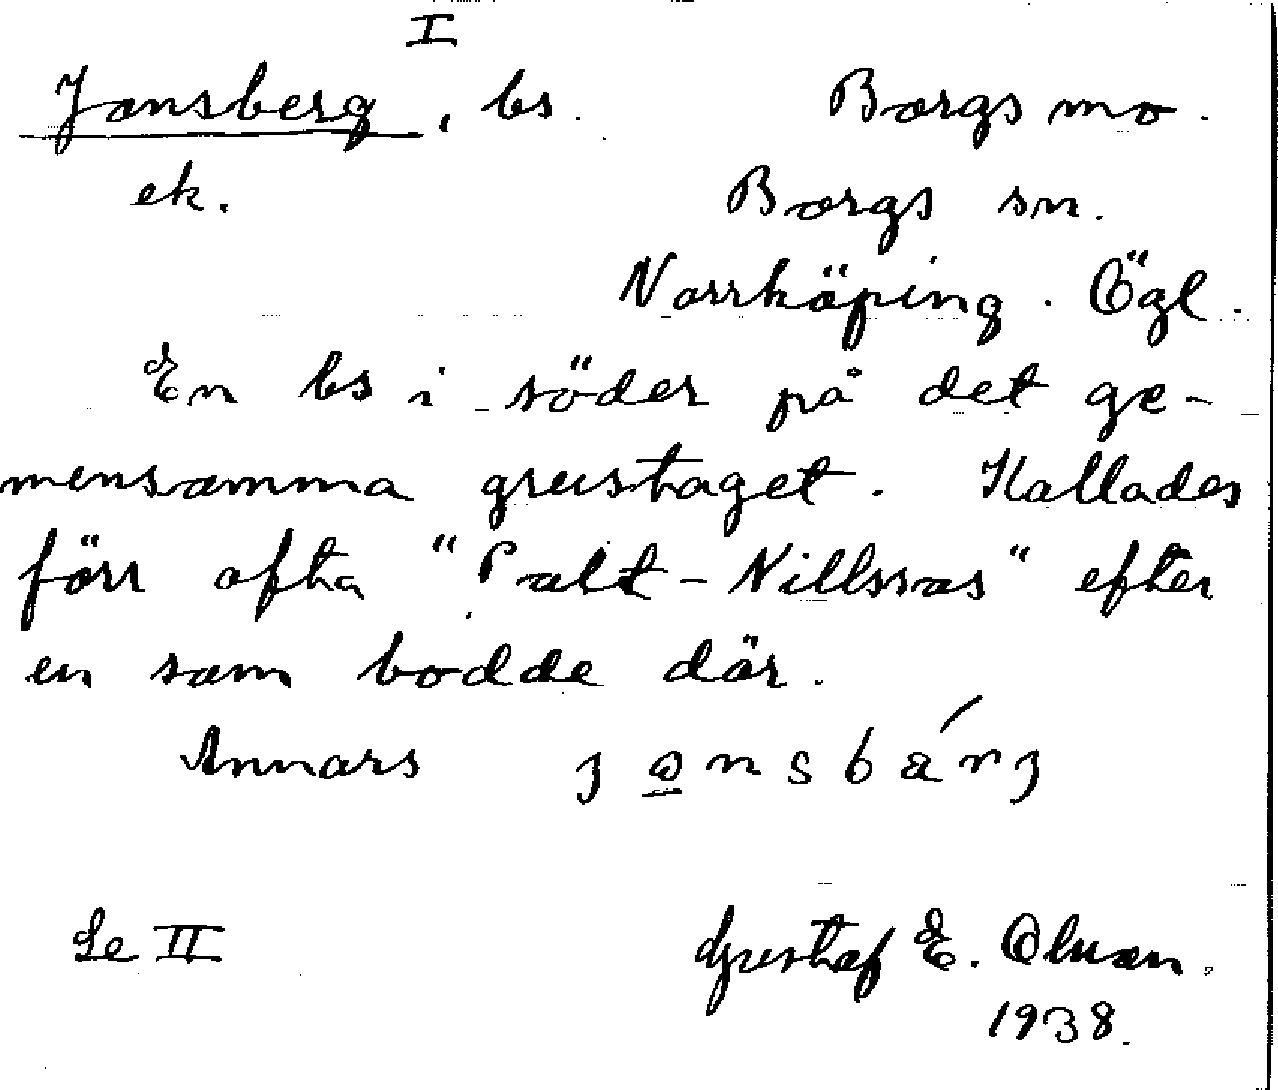 I
Jonsberg, bs Borgs mo.
ek. Borgs sn.
Norrköping. Ögl.
En bs i söder på det ge-
mensamma grustaget. Kallades
förr ofta "Palt-Nillssas" efter
en som bodde där.
Annars jo̲nsbárj
Se II Gustaf E. Olsson.
1938.